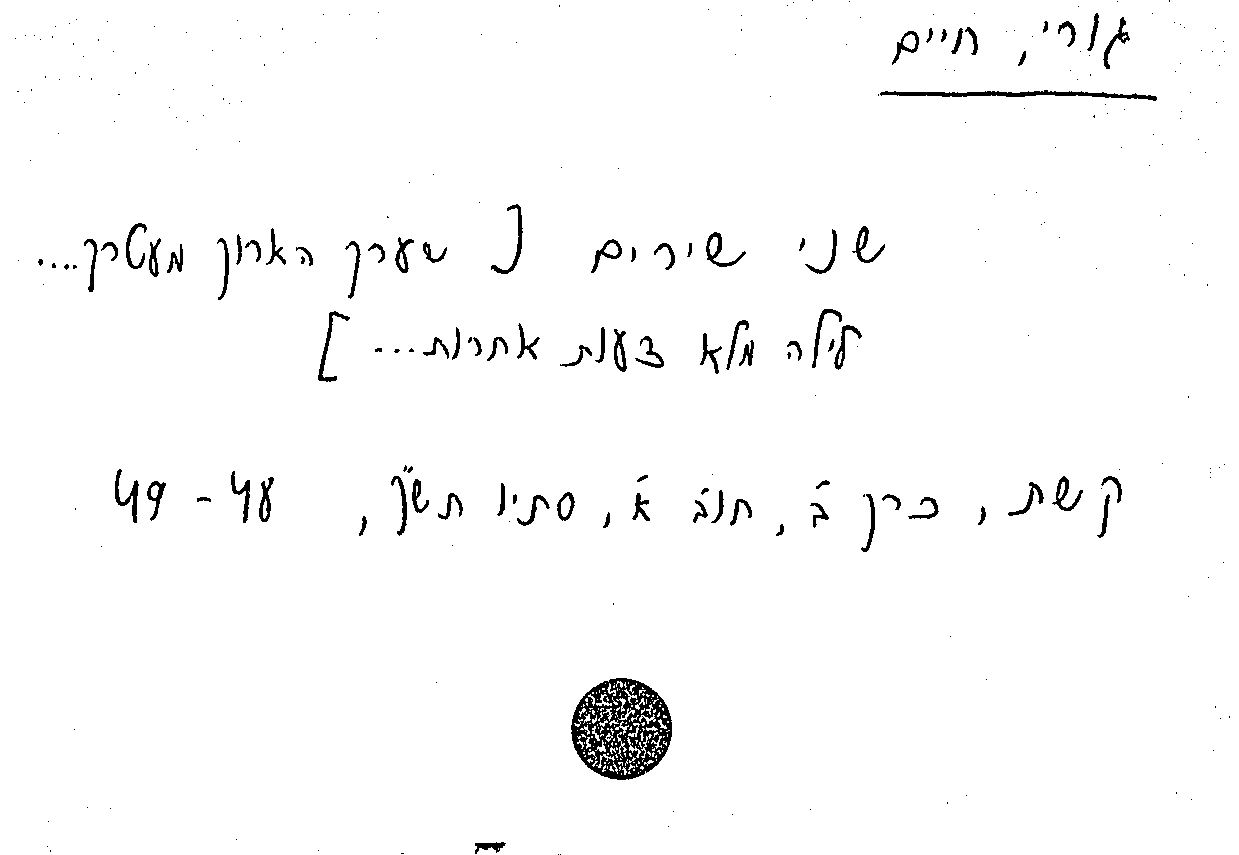 גורי, חיים
שני שירים [ שערך הארוך מעטרך....
לילה מלא דעות אחרות... ]
קשת, כרך ב', חוב' א', סתיו תש"ך, 48 - 49